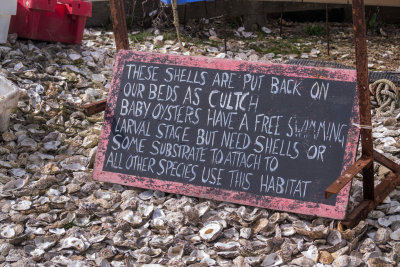 THESE SHELLS ARE PUT BACK ON
OUR BEDS AS CULTCH
BABY OYSTERS HAVE A FREE SWIMMING
LARVAL STAGE BUT NEED SHELLS OR
SOME SUBSTRATE TO ATTACH TO
ALL OTHER SPECIES USE THIS HABITAT